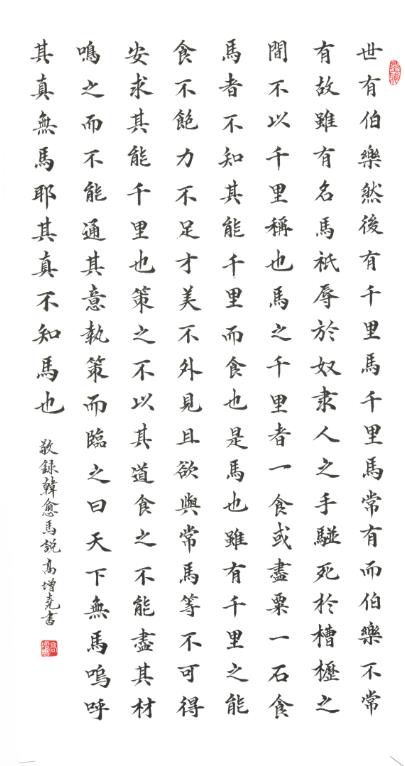 世有伯樂然後有千里馬千里馬常有而伯樂不常
有故雖有名馬祇辱於奴隶人之手駢死於槽櫪之
間不以千里稱也馬之千里者一食或盡粟一石食
馬者不知其能千里而食也是馬也雖有千里之能
食不飽力不足才美不外見且欲與常馬等不可得
安求其能千里也策之不以其道食之不能盡其材
鳴之而不能通其意執策而臨之曰天下無馬嗚呼
其真無馬耶其真不知馬也
敬録韓愈馬説高增書